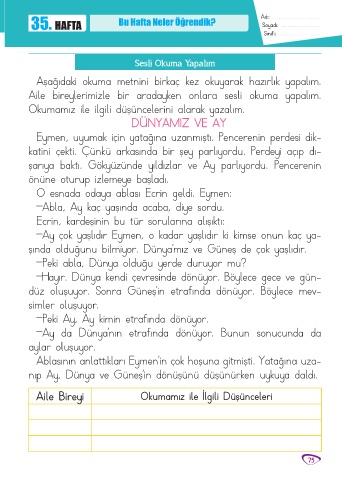 35. HAFTA
Bu Hafta Neler Öğrendik?
Adı:
Soyadı:
Sınıfı:
Sesli Okuma Yapalım
Aşağıdaki okuma metnini birkaç kez okuyarak hazırlık yapalım.
Aile bireylerimizle bir aradayken onlara sesli okuma yapalım.
Okumamız ile ilgili düşüncelerini alarak yazalım.
DÜNYAMIZ VE AY
Eymen, uyumak için yatağına uzanmıştı. Pencerenin perdesi dik-
katini çekti. Çünkü arkasında bir şey parlıyordu. Perdeyi açıp dı-
şarıya baktı. Gökyüzünde yıldızlar ve Ay parlıyordu. Pencerenin
önüne oturup izlemeye başladı.
O esnada odaya ablası Ecrin geldi. Eymen:
–Abla, Ay kaç yaşında acaba, diye sordu.
Ecrin, kardeşinin bu tür sorularına alışıktı:
–Ay çok yaşlıdır Eymen, o kadar yaşlıdır ki kimse onun kaç ya-
şında olduğunu bilmiyor. Dünya'mız ve Güneş de çok yaşlıdır.
–Peki abla, Dünya olduğu yerde duruyor mu?
–Hayır. Dünya kendi çevresinde dönüyor. Böylece gece ve gün-
düz oluşuyor. Sonra Güneş'in etrafında dönüyor. Böylece mev-
simler oluşuyor.
–Peki Ay, Ay kimin etrafında dönüyor.
–Ay da Dünya'nın etrafında dönüyor. Bunun sonucunda da
aylar oluşuyor.
Ablasının anlattıkları Eymen'in çok hoşuna gitmişti. Yatağına uza-
nıp Ay, Dünya ve Güneş'in dönüşünü düşünürken uykuya daldı.
Aile Bireyi
Okumamız ile İlgili Düşünceleri
75